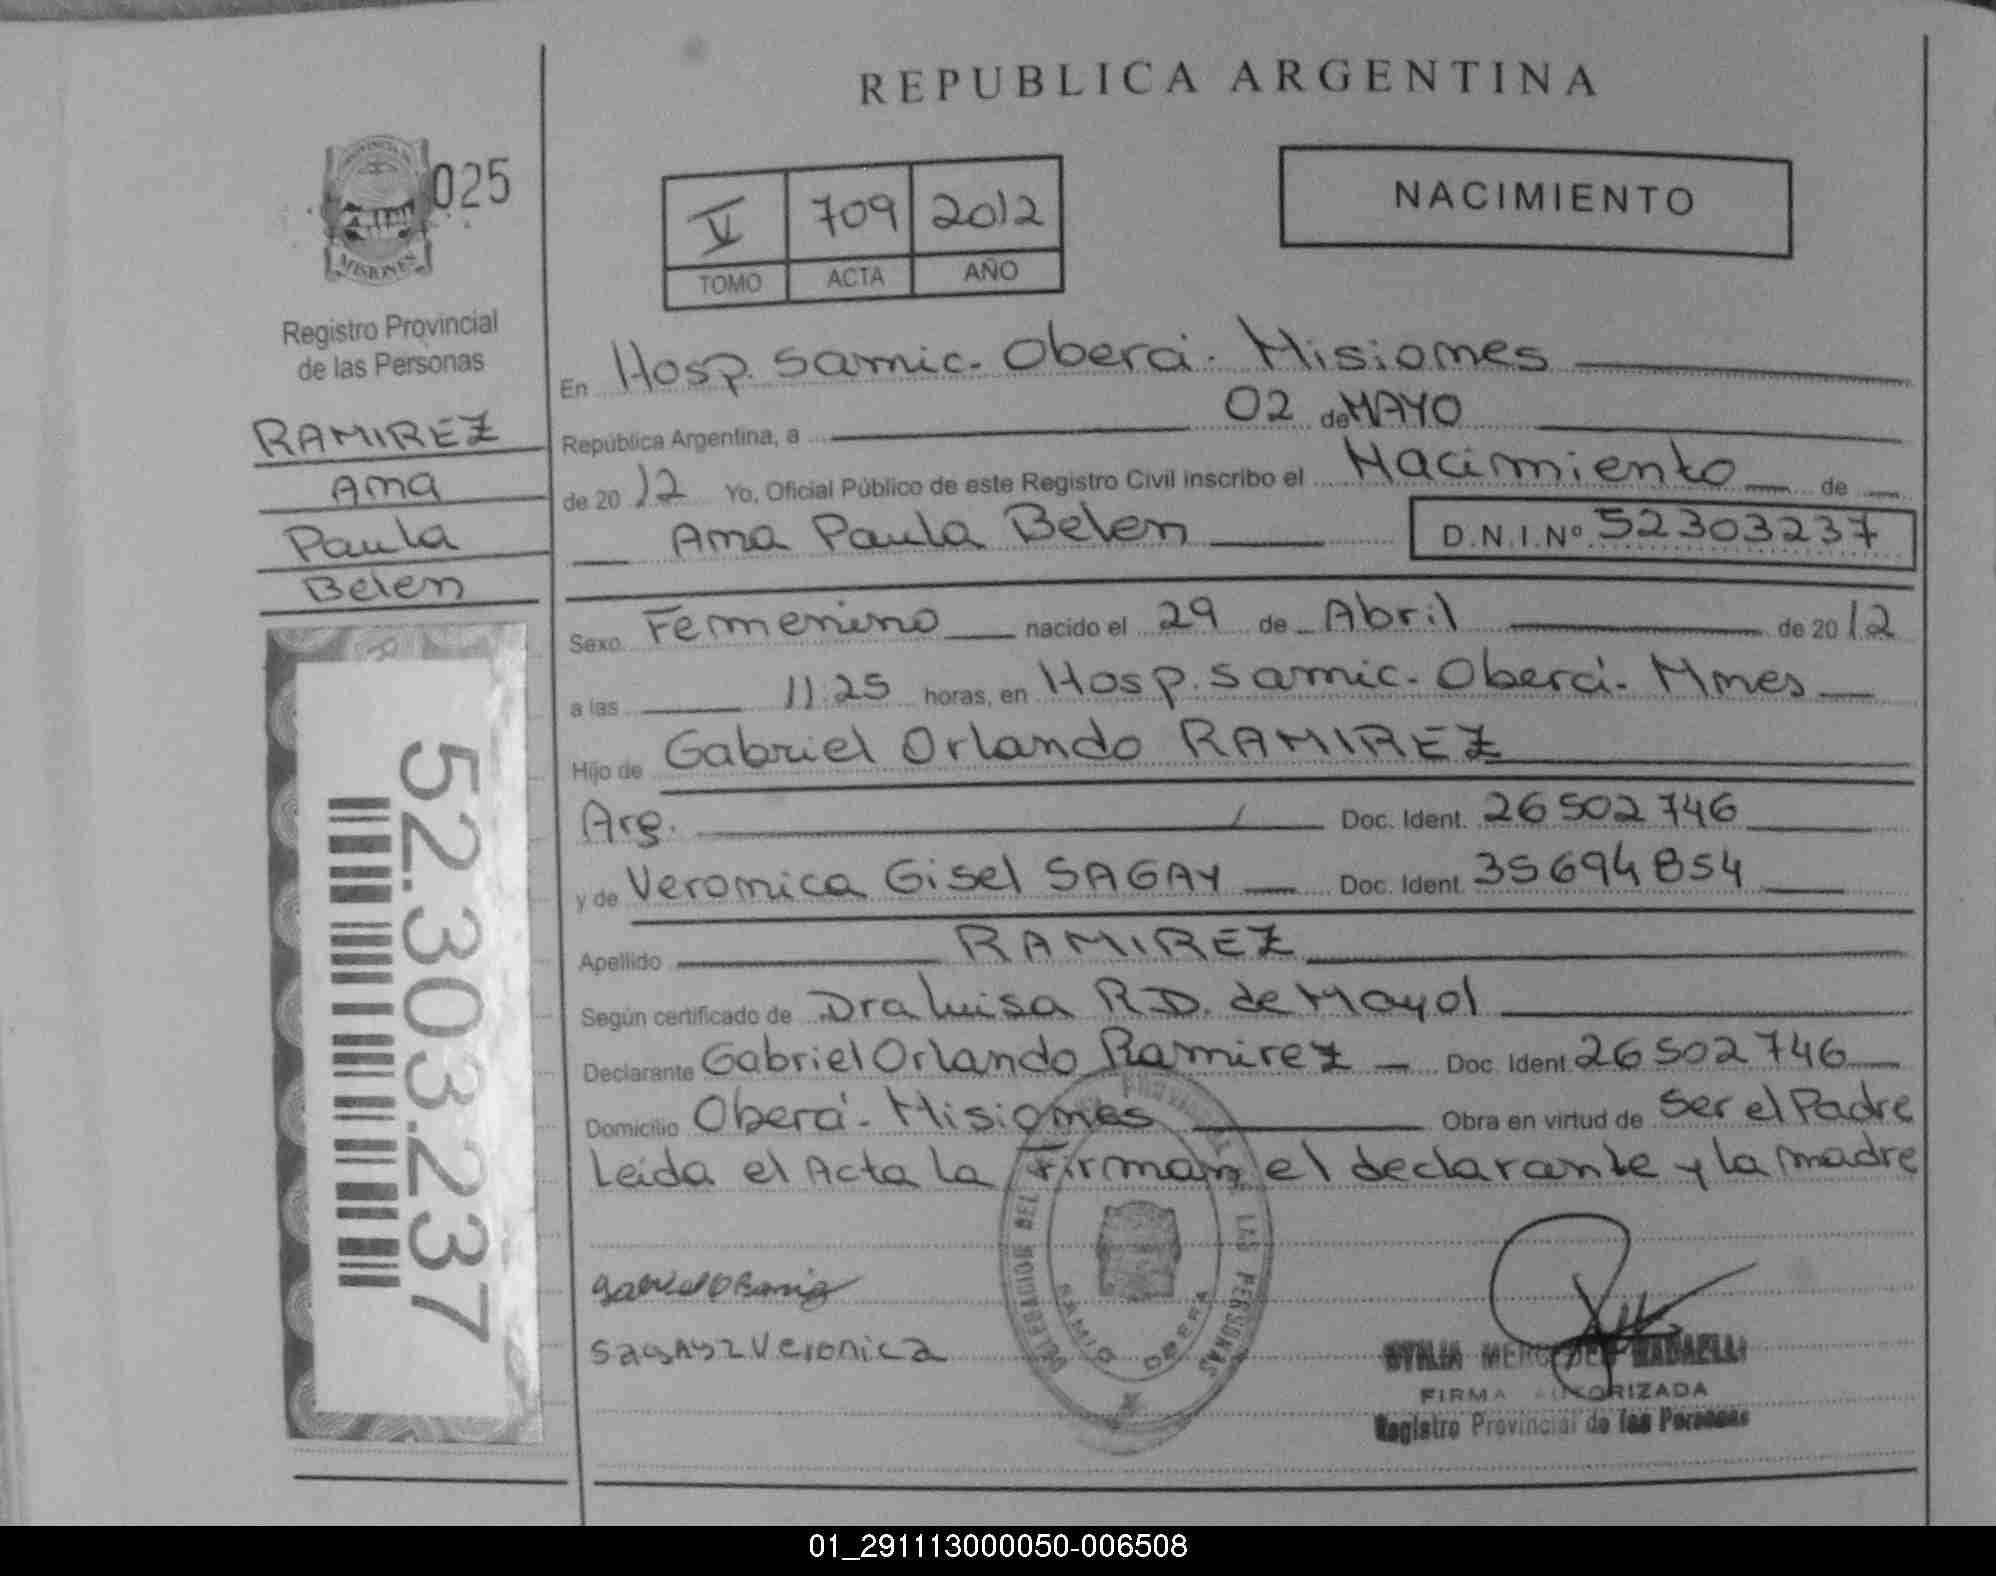 REPUBLICA ARGENTINA
025
MISIONES
Registro Provincial
de las Personas
RAMIREZ
Ana
Paula
Belen
52.303.237
V 709 2012
TOMO ACTA AÑO
NACIMIENTO
En Hosp. Samic. Oberá. Misiones
República Argentina, a 02 de MAYO
de 2012 Yo, Oficial Público de este Registro Civil inscribo el Nacimiento de
Ana Paula Belen D.N.I.Nº 52303237
Sexo Femenino nacido el 29 de Abril de 2012
a las 11:25 horas, en Hosp. Samic. Oberá. Mnes
Hijo de Gabriel Orlando RAMIREZ
Arg. Doc. Ident. 26502746
y de Veronica Gisel SAGAY Doc. Ident. 35694854
Apellido RAMIREZ
Según certificado de Dra Luisa R.D. de Mayol
Declarante Gabriel Orlando Ramirez Doc. Ident 26502746
Domicilio Oberá. Misiones Obra en virtud de Ser el Padre
Leida el Acta la Firman el declarante y la madre
DELEGACION DEL PROVINCIAL LAS PERSONAS
SAMIC OBERA
Veronica
FIRMA AUTORIZADA
Registro Provincial de las Personas
01_291113000050-006508